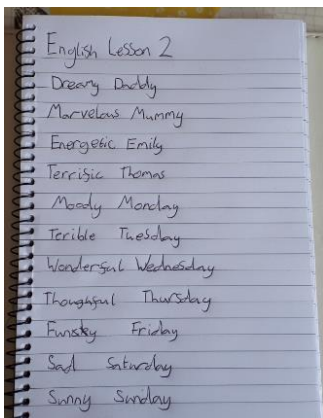 English Lesson 2
Dreamy Daddy
Marvelous Mummy
Energetic Emily
Terrific Thomas
Moody Monday
Terible Tuesday
Wonderful Wednesday
Thoughful Thursday
Friday
Sad Saturday
Sunny Sunday